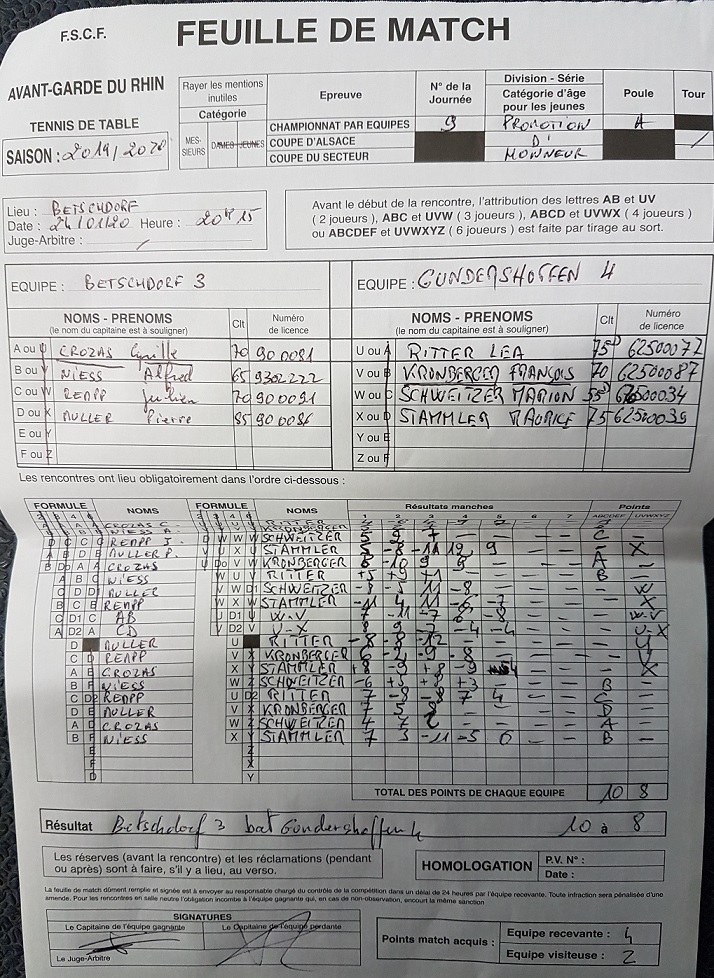 F.S.C.F. FEUILLE DE MATCH
AVANT-GARDE DU RHIN
TENNIS DE TABLE
SAISON : 2019/2020
Rayer les mentions inutiles
Catégorie
MES-SIEURS DAMES JEUNES
Epreuve
N° de la Journée
Division - Série
Catégorie d'âge pour les jeunes
Poule
Tour
CHAMPIONNAT PAR EQUIPES 9 PROMOTION A
COUPE D'ALSACE D'
COUPE DU SECTEUR HONNEUR
Lieu : BETSCHDORF
Date : 24/01/20 Heure : 20H15
Juge-Arbitre : /
Avant le début de la rencontre, l'attribution des lettres AB et UV
( 2 joueurs ), ABC et UVW ( 3 joueurs ), ABCD et UVWX ( 4 joueurs )
ou ABCDEF et UVWXYZ ( 6 joueurs ) est faite par tirage au sort.
EQUIPE : BETSCHDORF 3
EQUIPE : GUNDERSHOFFEN 4
NOMS - PRENOMS Clt Numéro de licence
(le nom du capitaine est à souligner)
NOMS - PRENOMS Clt Numéro de licence
(le nom du capitaine est à souligner)
A ou U CROZAS Cyrille 70 900081
U ou A RITTER LEA 75D 62500072
B ou V NIESS Alfred 65 9302222
V ou B KRONBERGER FRANÇOIS 70 62500087
C ou W REMPP Julien 70 900091
W ou C SCHWEITZER MARION 55D 62500034
D ou X MULLER Pierre 85 900086
X ou D STAMMLER MAURICE 75 62500039
E ou Y
Y ou E
F ou Z
Z ou F
Les rencontres ont lieu obligatoirement dans l'ordre ci-dessous :
FORMULE NOMS FORMULE NOMS Résultats manches Points
1 2 3 4 5 6 7 ABCDEF UVWXYZ
CROZAS C.
NIESS A. KRONBERGER
REMPP J. SCHWEITZER 5 9 7 — — — — C —
MULLER P. STAMMLER 5 -8 -11 12 9 — — — X
CROZAS KRONBERGER 6 -10 9 — — — A —
NIESS RITTER +5 +9 — — — — B —
MULLER SCHWEITZER -8 — — W
REMPP STAMMLER -11 4 11 -6 — — — X
AB W-V -7 -11 -8 — — W-V
CD U-X 8 -4 -4 — — — U-X
MULLER RITTER -8 -8 -12 — — — — U
REMPP KRONBERGER -9 -8 — — — V
CROZAS STAMMLER +8 -9 +8 -9 — — — X
NIESS SCHWEITZER -6 +5 +8 +3 — — — B —
REMPP RITTER 7 -8 -8 7 4 — — C —
MULLER KRONBERGER 7 5 8 — — — — D —
CROZAS SCHWEITZER 4 7 2 — — — — A —
NIESS STAMMLER 7 3 -11 -5 6 — — B —
TOTAL DES POINTS DE CHAQUE EQUIPE 10 8
Résultat Betschdorf 3 bat Gundershoffen 4 10 à 8
Les réserves (avant la rencontre) et les réclamations (pendant
ou après) sont à faire, s'il y a lieu, au verso.
HOMOLOGATION P.V. N° :
Date :
La feuille de match dûment remplie et signée est à envoyer au responsable chargé du contrôle de la compétition dans un délai de 24 heures par l'équipe recevante. Toute infraction sera pénalisée d'une
amende. Pour les rencontres en salle neutre l'obligation incombe à l'équipe gagnante qui, en cas de non-observation, encourt la même sanction
SIGNATURES
Le Capitaine de l'équipe gagnante Le Capitaine de l'équipe perdante
Le Juge-Arbitre
Points match acquis : Equipe recevante : 4
Equipe visiteuse : 2